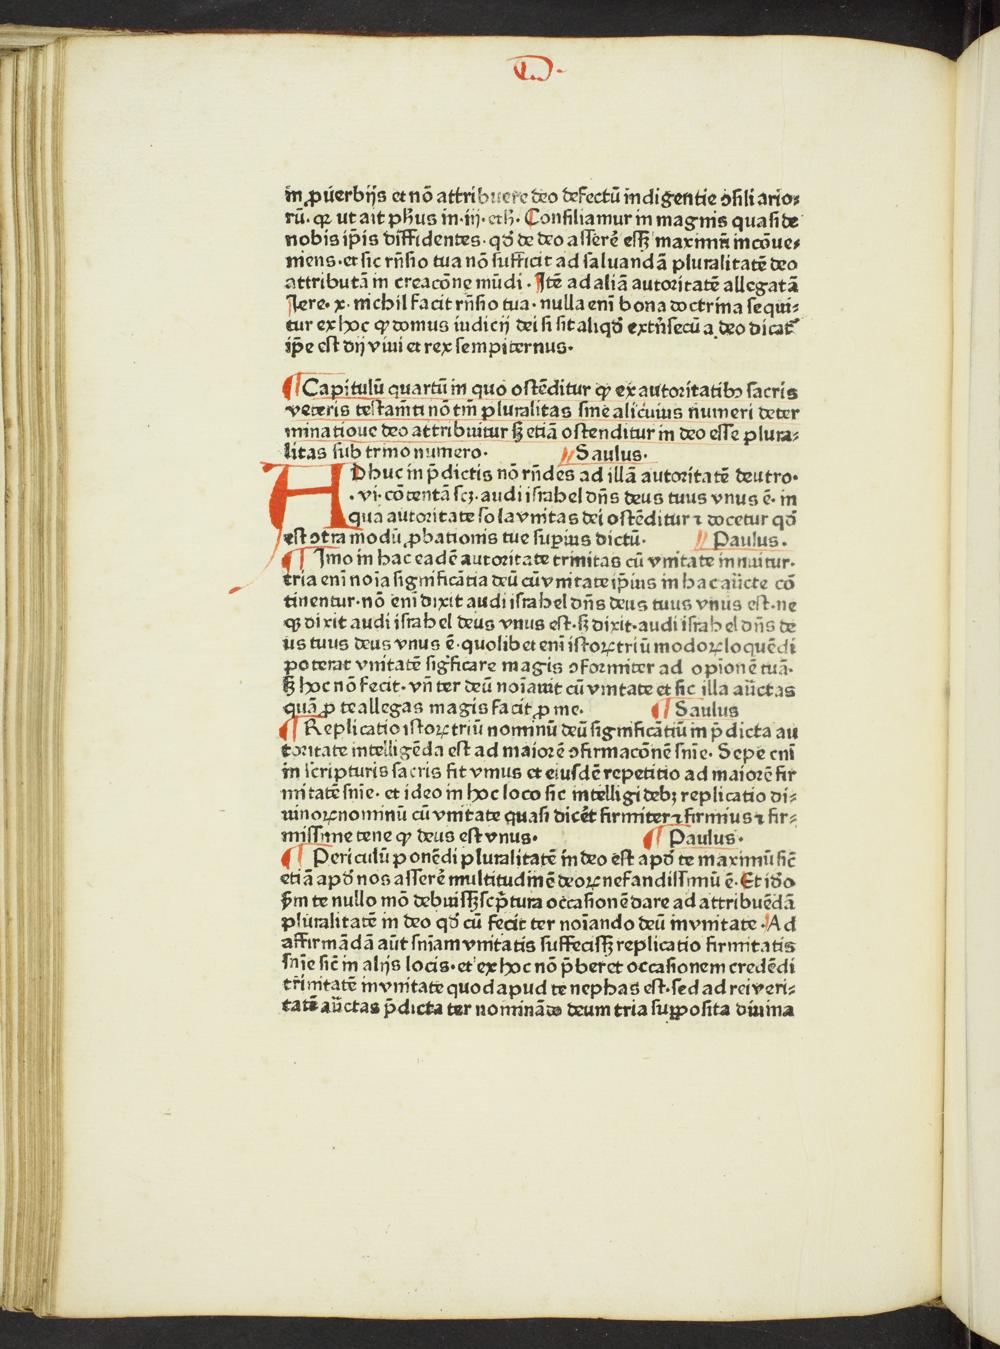 in ꝓuerbijs et nō attribuere deo defectū indigentie ↄsiliarioꝛ⸗
rū· qꝛ ut ait pħus in·iij·etħ· Consiliamur in magnis quasi de
nobis ip̄is diffidentes· qđ de deo asserē essꝫ maximū incōue⸗
niens·et sic rn̄sio tua nō sufficit ad saluandā pluralitatē deo
attributā in creacōne mūdi· Itē ad aliā autoritatē allegatā
Iere· x· nichil facit rn̄sio tua· nulla enī bona doctrina sequi⸗
tur ex hoc ꝙ domus iudicij dei si sit aliqđ extn̄secū a deo dicat᷑
ip̄e est dij viui et rex sempiternus·
¶ Capitulū quartū in quo ostēditur ꝙ ex autoritatibꝫ sacris
veteris testam̄ti nō tm̄ pluralitas sine alicuius numeri deter
minatioue deo attribuitur sꝫ etiā ostenditur in deo esse plura⸗
litas sub trino numero· Saulus·
ADhuc in p̄dictis nō rn̄des ad illā autoritatē deutro·
·vi· cōtentā scꝫ· audi israhel dn̄s deus tuus vnus ē· in
qua autoritate sola vnitas dei ostēditur ⁊ docetur qđ
est ↄtra modū ꝓbationis tue sup̄ius dictū· Paulus·
¶ Imo in hac eadē autoritate trinitas cū vnitate innuitur·
tria enī noīa significātia deū cū vnitate ip̄ius in hac aūcte cō
tinentur· nō enī dixit audi israhel dn̄s deus tuus vnus est· ne
qꝫ dixit audi israhel deus vnus est· sꝫ dixit· audi israhel dn̄s de
us tuus deus vnus ē· quolibet enī istoꝝ triū modoꝝ loquēdi
poterat vnitatē sig̃ficare magis ↄformiter ad opīonē tuā·
sꝫ hoc nō fecit· vn̄ ter deū noīauit cū vnitate et sic illa aūctas
quā ꝓ te allegas magis facit ꝓ me· ¶ Saulus
¶ Replicatio istoꝝ triū nominū deū significātiū in p̄dicta au
toritate intelligēda est ad maiorē ↄfirmacōnē sn̄ie· Sepe enī
in scripturis sacris fit vnius et eiusdē repetitio ad maiorē fir
mitatē sn̄ie· et ideo in hoc loco sic intelligi debꝫ replicatio di⸗
uinoꝝ nominū cū vnitate quasi dicēt firmiter ⁊ firmius ⁊ fir⸗
missime tene ꝙ deus est vnus· ¶ Paulus·
¶ Periculū ponēdi pluralitatē in deo est apđ te maximū sic̄
etiā apđ nos asserē multitudinē deoꝝ nefandissimū ē· Et iđo
ẜm te nullo mō debuissꝫ sc̄ptura occasionē dare ad attribuēdā
pluralitatē in deo qđ cū fecit ter noīando deū in vnitate· Ad
affirmādā aūt sn̄iam vnitatis suffecissꝫ replicatio firmitatis
sn̄ie sic̄ in alijs locis· et ex hoc nō p̄beret occasionem credēdi
trinitatē in vnitate quod apud te nephas est· sed ad rei veri⸗
tatē aūctas p̄dicta ter nominādo deum tria supposita diuina